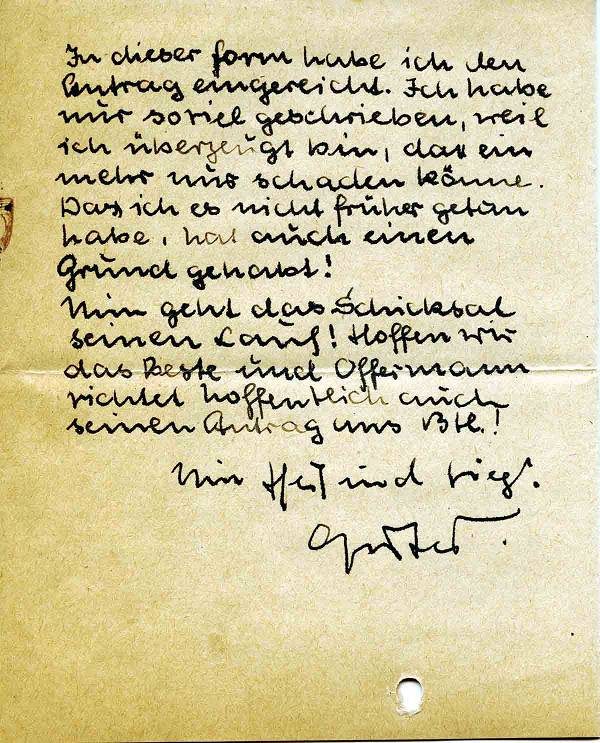 In dieser form habe ich den
Antrag eingereicht. Ich habe
nur soviel geschrieben, weil
ich überzeugt bin, das ein
mehr nur schaden könne.
Das ich es nicht früher getan
habe, hat auch einen
Grund gehabt!
Nun geht das Schicksal
seinen Lauf! Hoffen wir
das Beste und Offermann
richtet hoffentlich auch
seinen Antrag ans Btl.!
Nun Heil und Sieg!